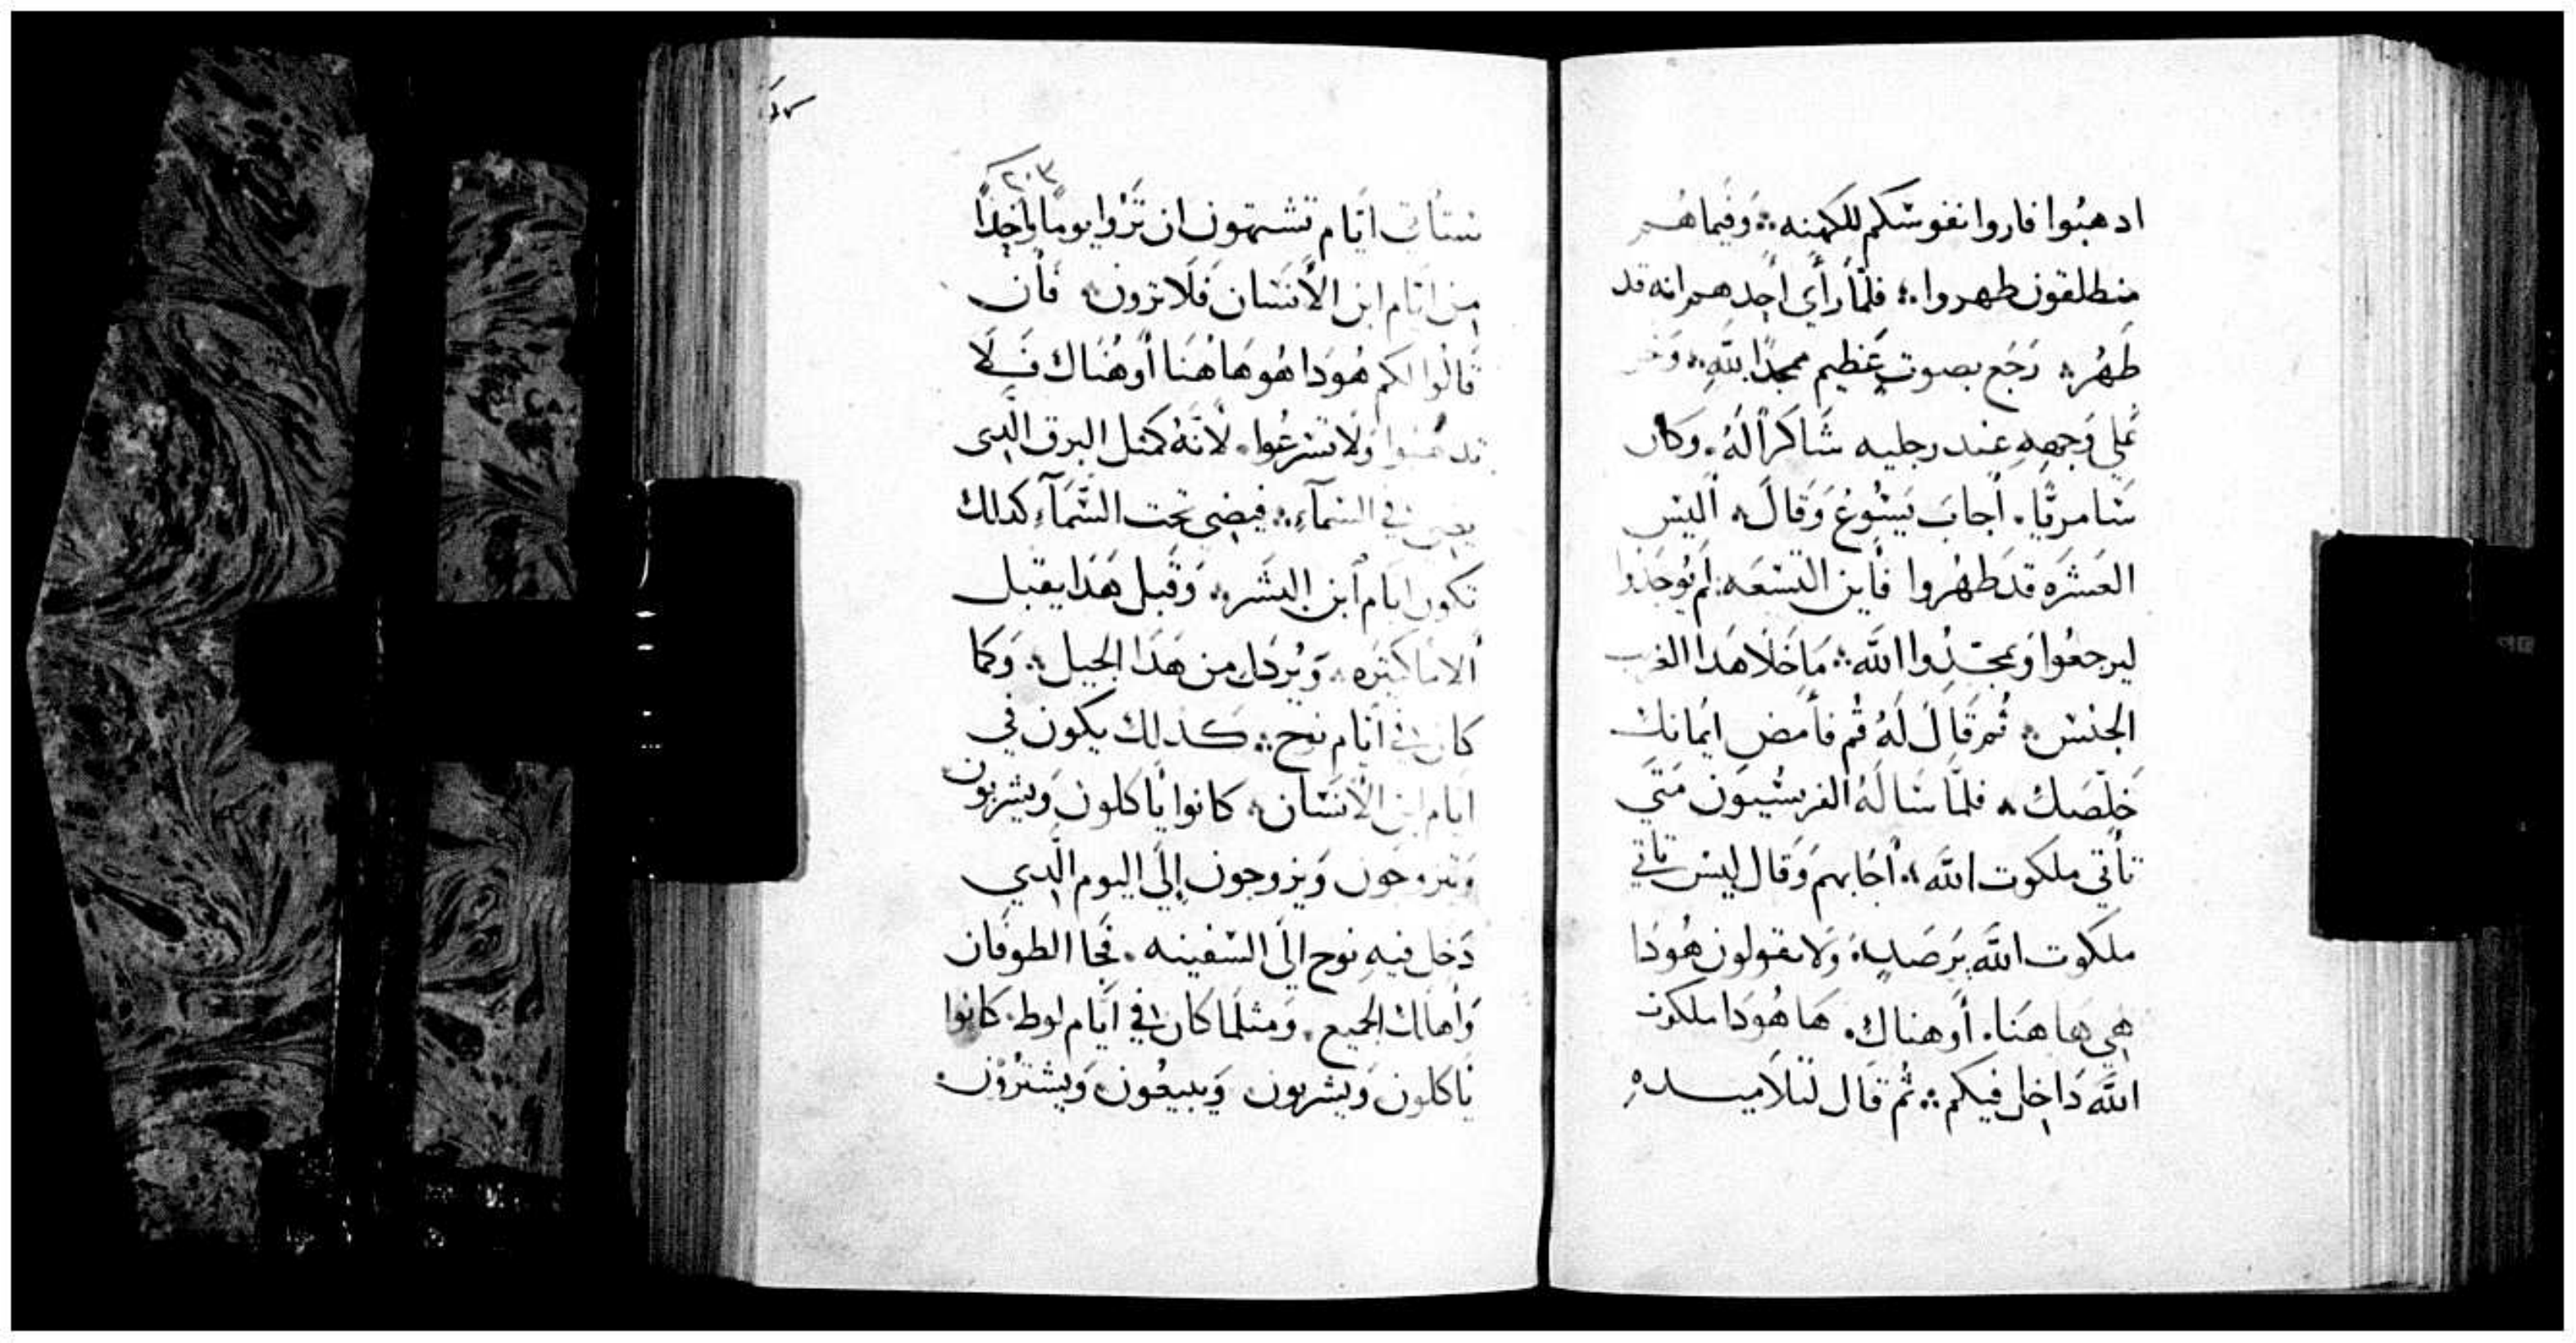 ادهبُوا فاروا نفوسكم للكهنه؞ وَفيما هُم
منطلقون طهروا؞ فلمّا رَأي احدهم انه قد
طَهُر؞ رَجَع بصوت عَظيم ممجدًا للهِ؞ وَخر
عَلي وَجههِ عند رجليه شَاكرًا لَهُ. وكان
سَامريًا. أجابَ يَسُوعُ وَقالَ؞ أليس
العَشَره قد طَهُروا فأين التسعه لم يُوجَدوا
ليرجعُوا وَيمجّدُوا الله؞ مَا خَلا هَدا الغريب
الجنس؞ ثُم قَالَ لَهُ قُم فأمض ايمَانك
خَلّصَك؞ فلمَّا سَالَهُ الفريسُيون مَتَي
تَأتي ملكوت الله؞ أجَابهم وَقال ليس تاتي
ملكوت اللَّه بِرَصَدٍ؞ وَلا يقولون هُودَا
هي هَا هَنا. أو هناك. هَا هُودَا ملكوت
اللَّه دَاخِل فيكم؞ ثُم قَال لتلاميدهِ
٢٠٣
ستأتي ايَّام تشتهون ان تَرَوا يومًا وَاحِدًا
مِن ايَّام ابن الأنسَان فَلا ترون؞ فَأن
قَالُوا لكم هُودَا هُو هَاهُنَا أو هُنَاك فَلا
تدهبُوا وَلا تسرعُوا. لأنَّهُ كمثل البرق الَّدِى
يضِى في السمآءِ؞ فيضِى تحت السَّمَآءِ كدلك
تكون ايام أبن البَشَر؞ وَقَبل هَدَا يقبل
ألامَا كثيره؞ وَيُردَل من هَدَا الجيل؞ وَكما
كان في أيَّام نوح؞ كدلك يكون في
ايام ابن الأنسَان؞ كانوا يَأكلون وَيشربُون
وَيتزوجون وَيزوجون إلَى اليوم الَّدِي
دَخل فيهِ نوح الَى السَفينه. فجَا الطوفَان
وَأهلك الجميع. وَمثلمَا كان في أيَّام لوط. كانوا
يَاكلون وَيشربون وَيبيعُون وَيشترُون